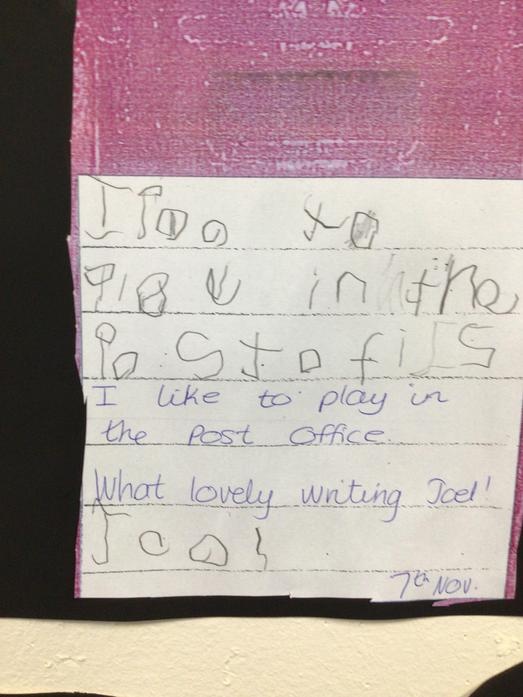 to
in the
Postofiss
I like to play in
the Post Office.
What lovely writing Joel!
Joal
7th Nov.